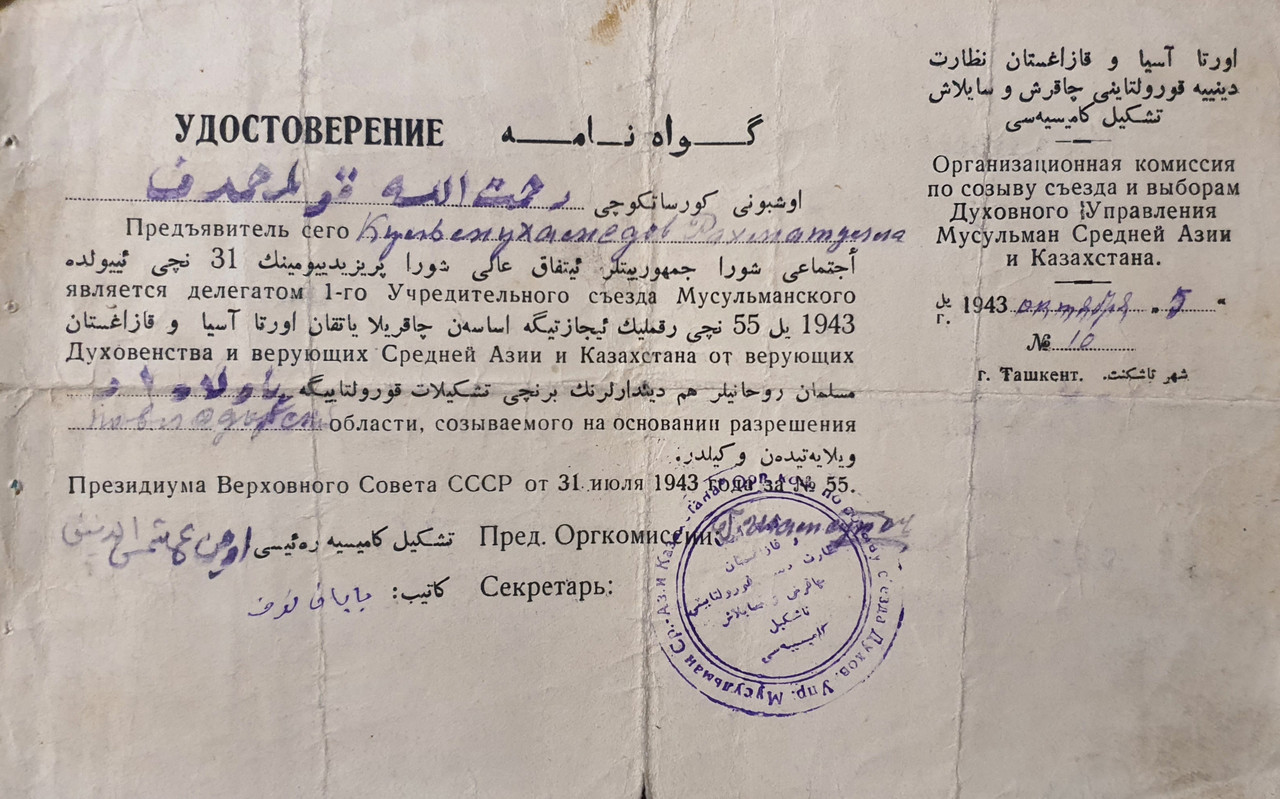 اورتا آسیا و قازاغستان نظارت
دینییه قورولتاینی چاقرش و سایلاش
تشکیل کامیسیه‌سی
Организационная комиссия
по созыву съезда и выборам
Духовного Управления
Мусульман Средней Азии
и Казахстана.
یل 1943 октября „5“
г.
№ 10
г. Ташкент. شهر تاشکنت.
УДОСТОВЕРЕНИЕ گواه نامه
اوشبونی کورساتکوچی رحمت الله
Предъявитель сего Кульмухамедов Рахматулла
اجتماعی شورا جمهورییتلر ئیتفاق عالی شورا پریزیدییومینك 31 نچی ئییولده
является делегатом 1-го Учредительного съезда Мусульманского
1943 یل 55 نچی رقملیك ئیجازتیگه اساسه‌ن چاقریلا یاتقان اورتا آسیا و قازاغستان
Духовенства и верующих Средней Азии и Казахстана от верующих
مسلمان روحانیلر هم دیندارلرنك برنچی تشکیلات قورولتاییگه
области, созываемого на основании разрешения
ویلایه‌تیده‌ن وکیلدر.
Президиума Верховного Совета СССР от 31 июля 1943 года за № 55.
تشکیل کامیسیه ره‌ئیسی Пред. Оргкомиссии:
کاتیب: Секретарь:
Духов. Упр. Мусульман Ср.-Аз. и